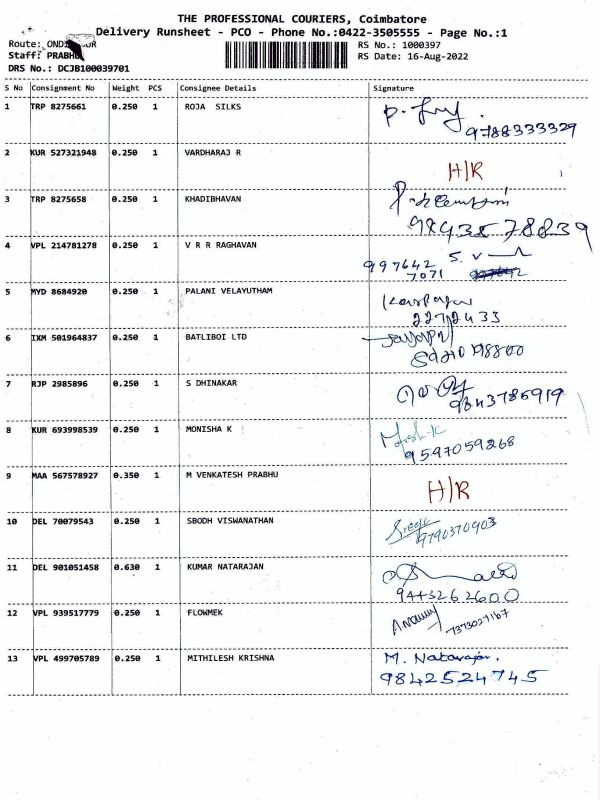 THE PROFESSIONAL COURIERS, Coimbatore
Delivery Runsheet - PCO - Phone No.:0422-3505555 - Page No.:1
Route: RS No.: 1000397
Staff: PRABHU RS Date: 16-Aug-2022
DRS No.: DCJB100039701
S No Consignment No Weight PCS Consignee Details Signature
1 TRP 8275661 0.250 1 ROJA SILKS
9788333329
2 KUR 527321948 0.250 1 VARDHARAJ R
H/R
3 TRP 8275658 0.250 1 KHADIBHAVAN
9843578839
4 VPL 214781278 0.250 1 V R R RAGHAVAN S. V
997642
7071
5 MYD 8684920 0.250 1 PALANI VELAYUTHAM
2272433
6 IXM 501964837 0.250 1 BATLIBOI LTD
7 RJP 2985896 0.250 1 S DHINAKAR
9843786919
8 KUR 693998539 0.250 1 MONISHA K
9597059268
9 MAA 567578927 0.350 1 M VENKATESH PRABHU
H/R
10 DEL 70079543 0.250 1 SBODH VISWANATHAN
9790370903
11 DEL 901051458 0.630 1 KUMAR NATARAJAN
9443262600
12 VPL 939517779 0.250 1 FLOWMEK
7373027167
13 VPL 499705789 0.250 1 MITHILESH KRISHNA M. Natarajan.
9842524745